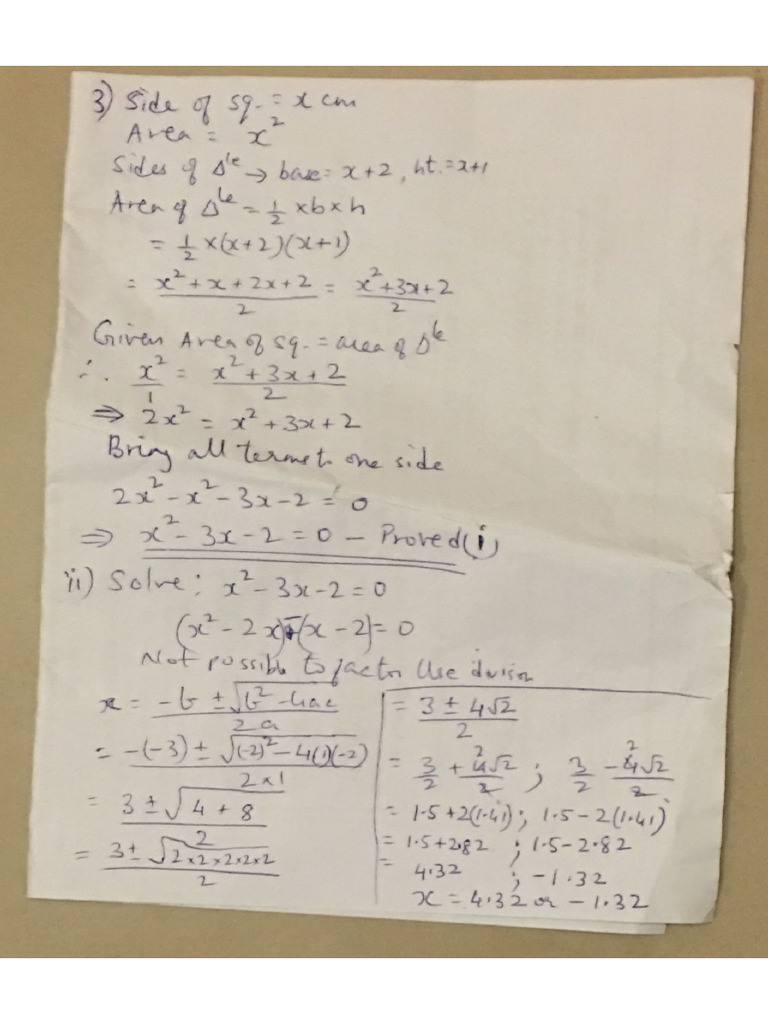 3) Side of sq. = x cm
Area = x²
Sides of Δle → base = x+2, ht. = x+1
Area of Δle = 1/2 × b × h
= 1/2 × (x+2)(x+1)
= (x² + x + 2x + 2)/2 = (x² + 3x + 2)/2
Given Area of sq. = area of Δle
∴ x²/1 = (x² + 3x + 2)/2
⇒ 2x² = x² + 3x + 2
Bring all terms to one side
2x² - x² - 3x - 2 = 0
⇒ x² - 3x - 2 = 0 — Proved (i)
ii) Solve: x² - 3x - 2 = 0
(x² - 2x) - (x - 2) = 0
Not possible to factor Use
x = (-b ± √(b² - 4ac))/2a
= (-(-3) ± √((-2)² - 4(1)(-2)))/(2×1)
= (3 ± √(4 + 8))/2
= (3 ± √(2×2×2×2×2))/2
= (3 ± 4√2)/2
= 3/2 + 4√2/2 ; 3/2 - 4√2/2
= 1.5 + 2(1.41) ; 1.5 - 2(1.41)
= 1.5 + 2.82 ; 1.5 - 2.82
= 4.32 ; -1.32
x = 4.32 or -1.32